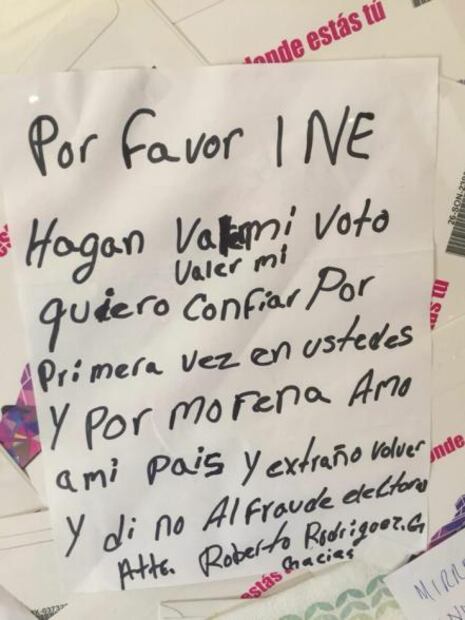 donde estás tú
Por favor INE
Hagan Valer mi Voto
Valer mi
quiero confiar Por
Primera vez en ustedes
Y Por morena Amo
ami Pais Y extraño volver
Y di no Al fraude electoral
Atte. Roberto Rodriguez.G
Gracias
estás
MIRR